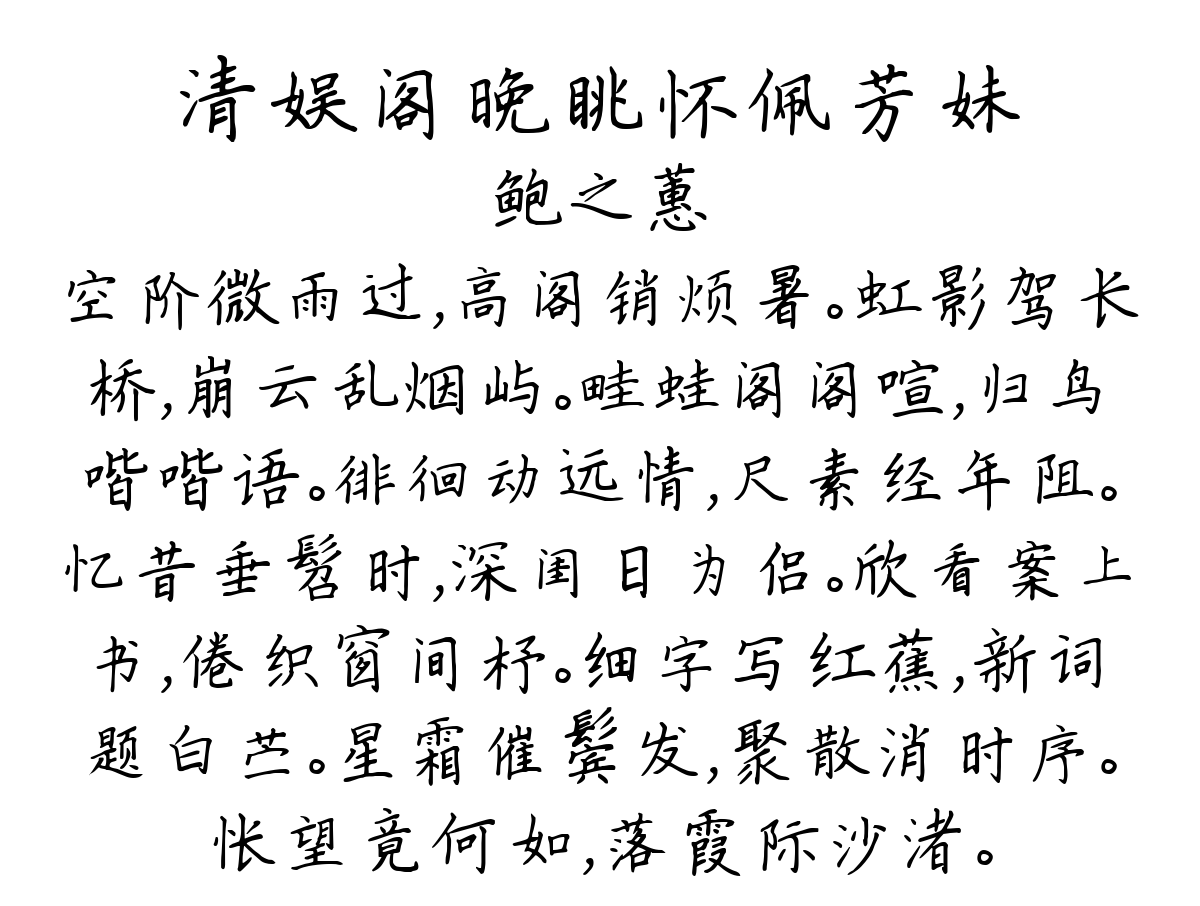 清娱阁晚眺怀佩芳妹
鲍之蕙
空阶微雨过,高阁销烦暑。虹影驾长
桥,崩云乱烟屿。畦蛙阁阁喧,归鸟
喈喈语。徘徊动远情,尺素经年阻。
忆昔垂髫时,深闺日为侣。欣看案上
书,倦织窗间杼。细字写红蕉,新词
题白苎。星霜催鬓发,聚散消时序。
怅望竟何如,落霞际沙渚。